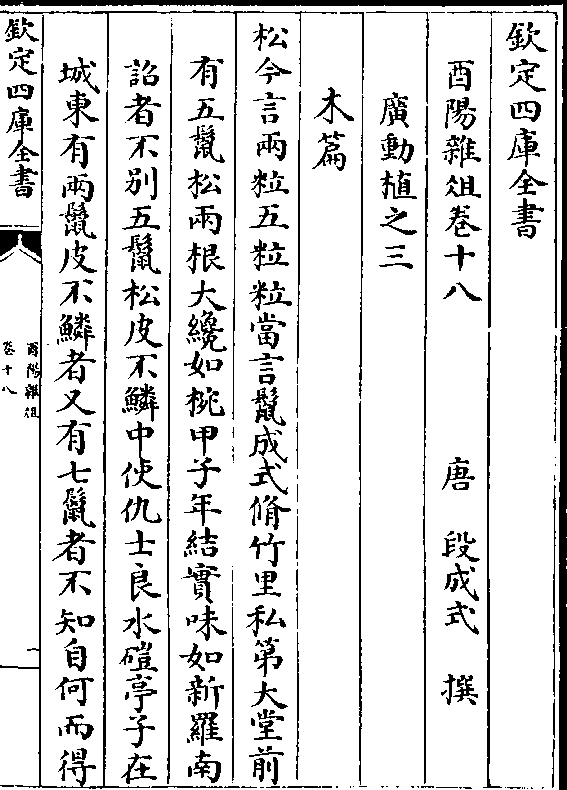 欽定四庫全書
酉陽雜俎卷十八
唐 段成式 撰
廣動植之三
木篇
松今言兩粒五粒粒當言鬛成式脩竹里私第大堂前
有五鬛松兩根大纔如椀甲子年結實味如新羅南
詔者不别五鬛松皮不鱗中使仇士良水磑亭子在
城東有兩鬛皮不鱗者又有七鬛者不知自何而得
欽定四庫全書
酉陽雜俎
卷十八
一